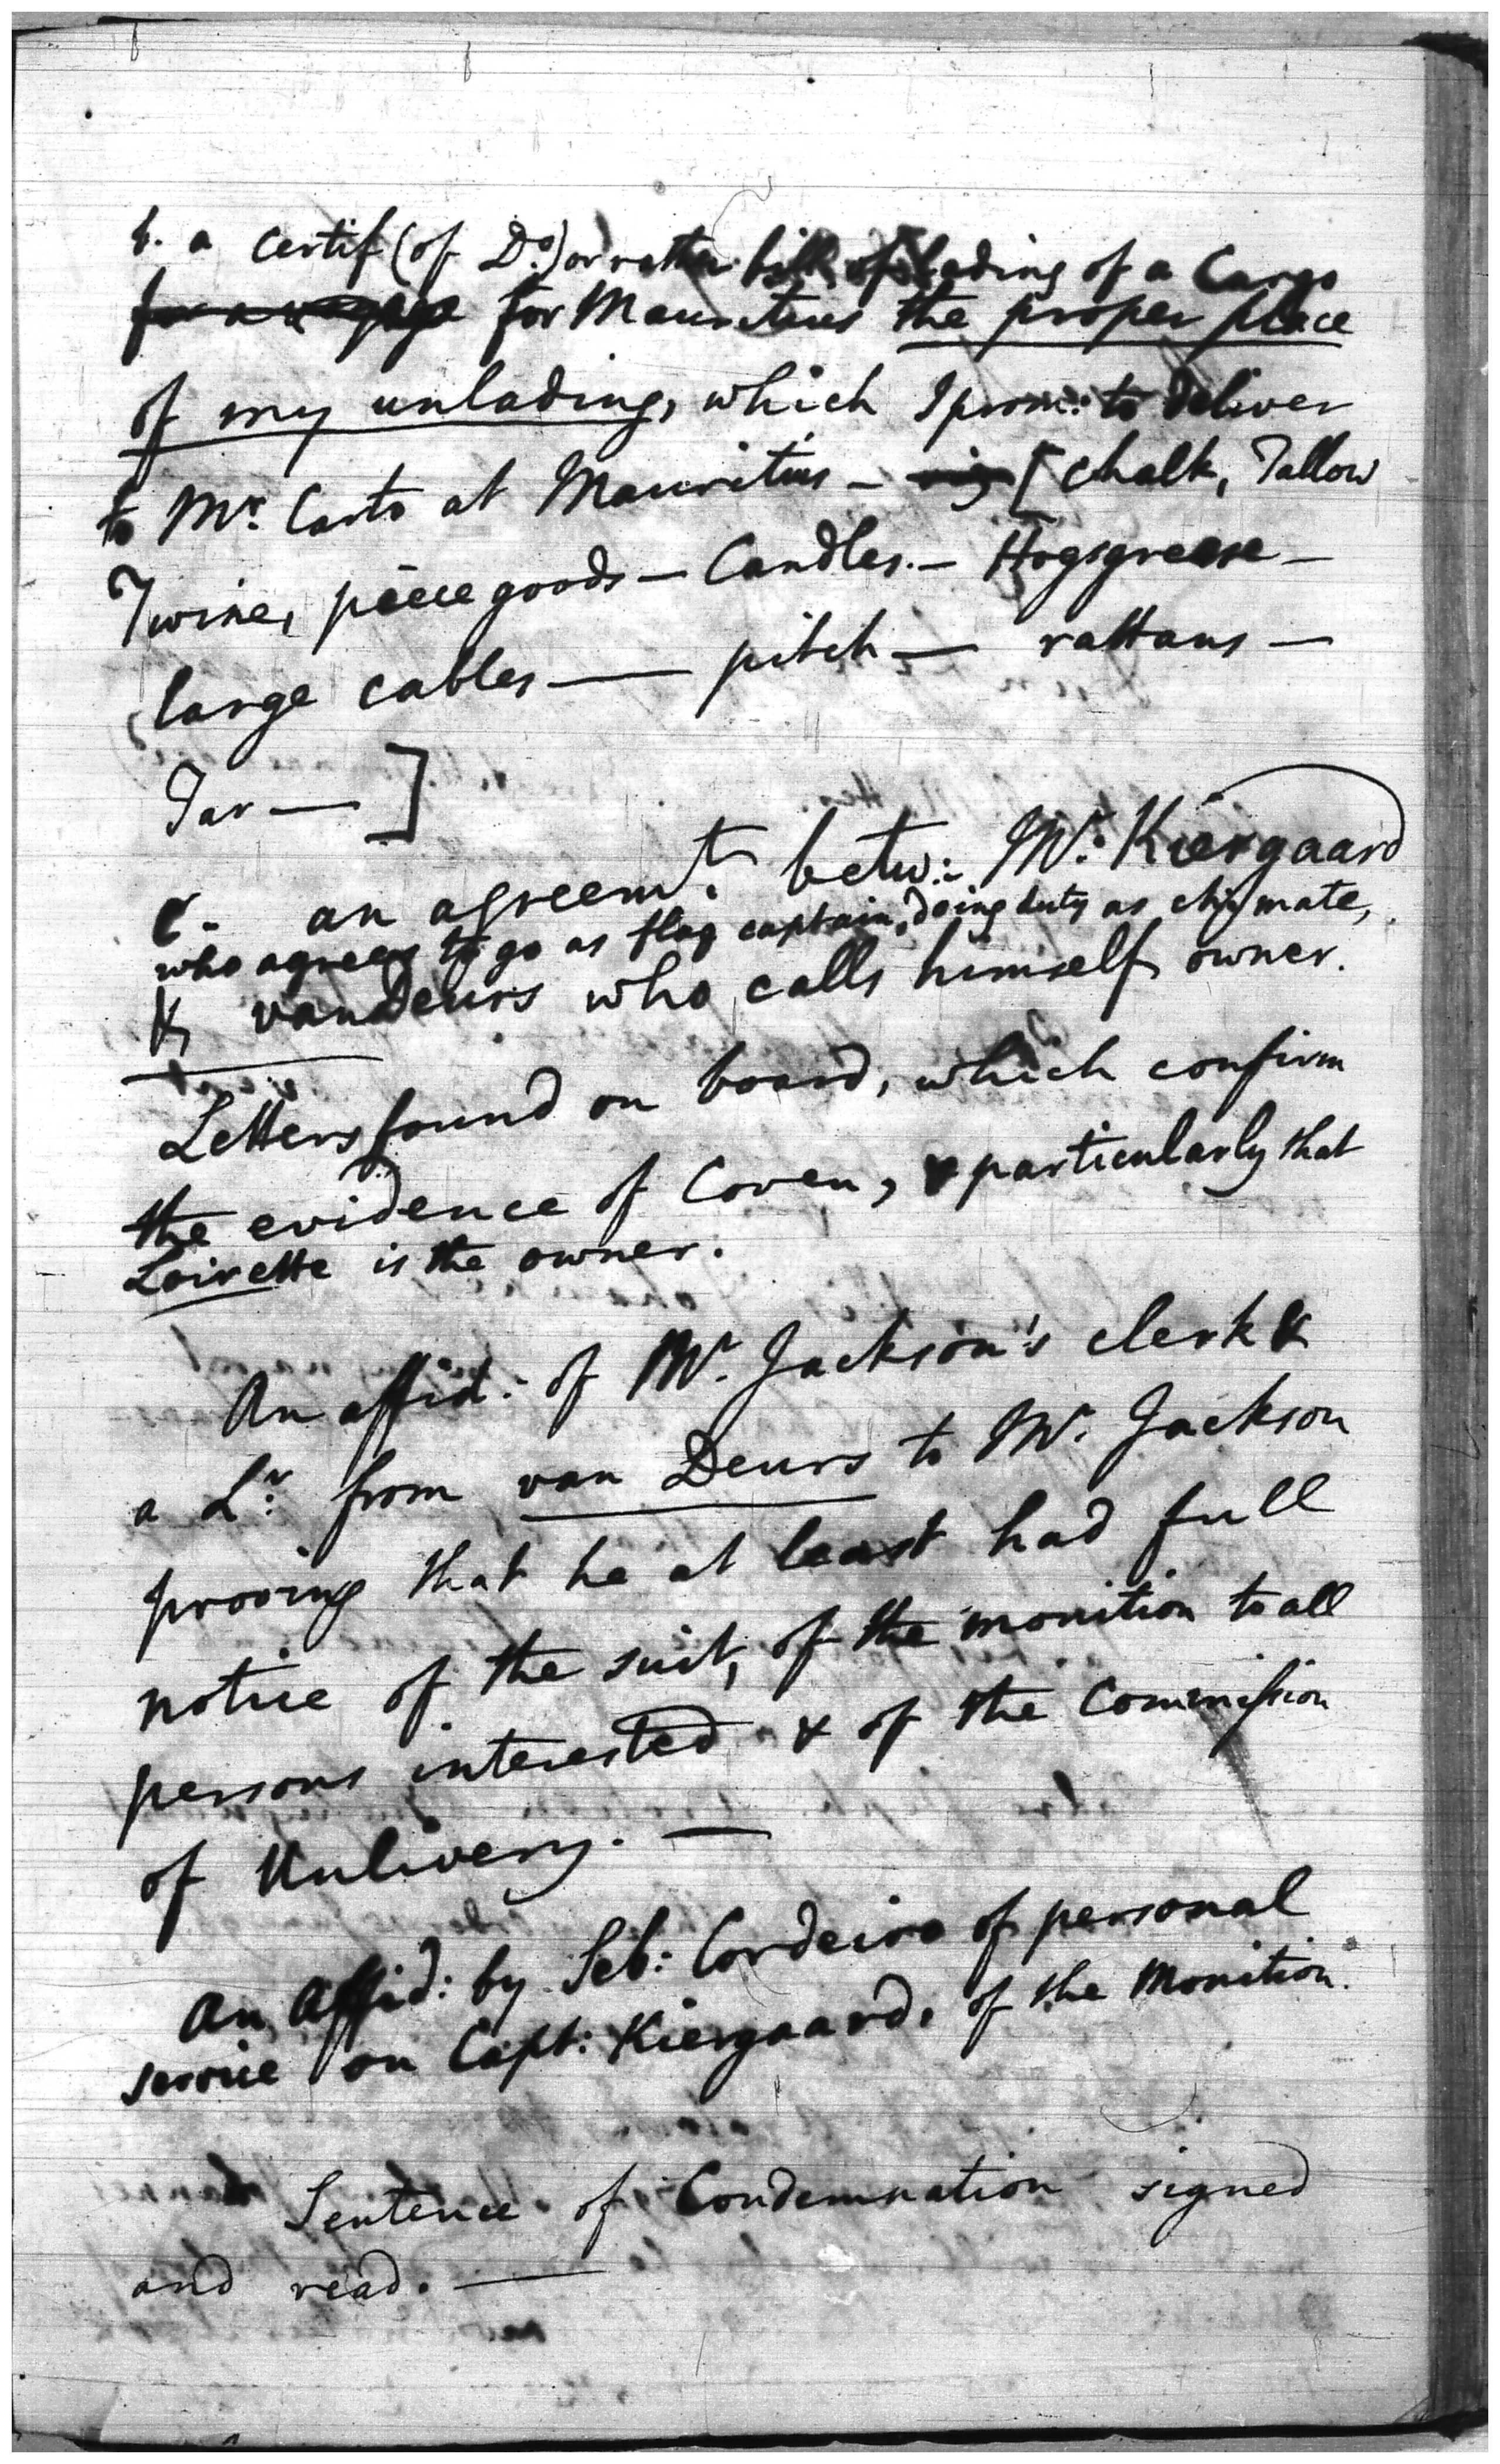 b. a certif (of Do.) or rather bill of lading of a Cargo
for a voyage for Mauritius the proper place
of my unlading, which I prom: to deliver
to Mr. Casto at Mauritius – [Chalk, Tallow
Twine, piece goods – Candles. – Hogsgrease –
large cables — pitch — rattans —
Tar — ]
c. an agreemt. betw: Mr. Kiergaard
who agrees to go as flag captain, doing duty as chf mate,
& van Deurs who calls himself owner.
Letters found on board, which confirm
the evidence of Coven, & particularly that
Loirette is the owner.
An affid: of Mr. Jackson's clerk &
a Lr. from van Deurs to Mr. Jackson
proving that he at least had full
notice of the suit, of the monition to all
persons interested & of the Commission
of Unlivery. —
An Affid: by Seb: Cordeiro of personal
service on Capt: Kiergaard, of the Monition.
Sentence of Condemnation signed
and read. —